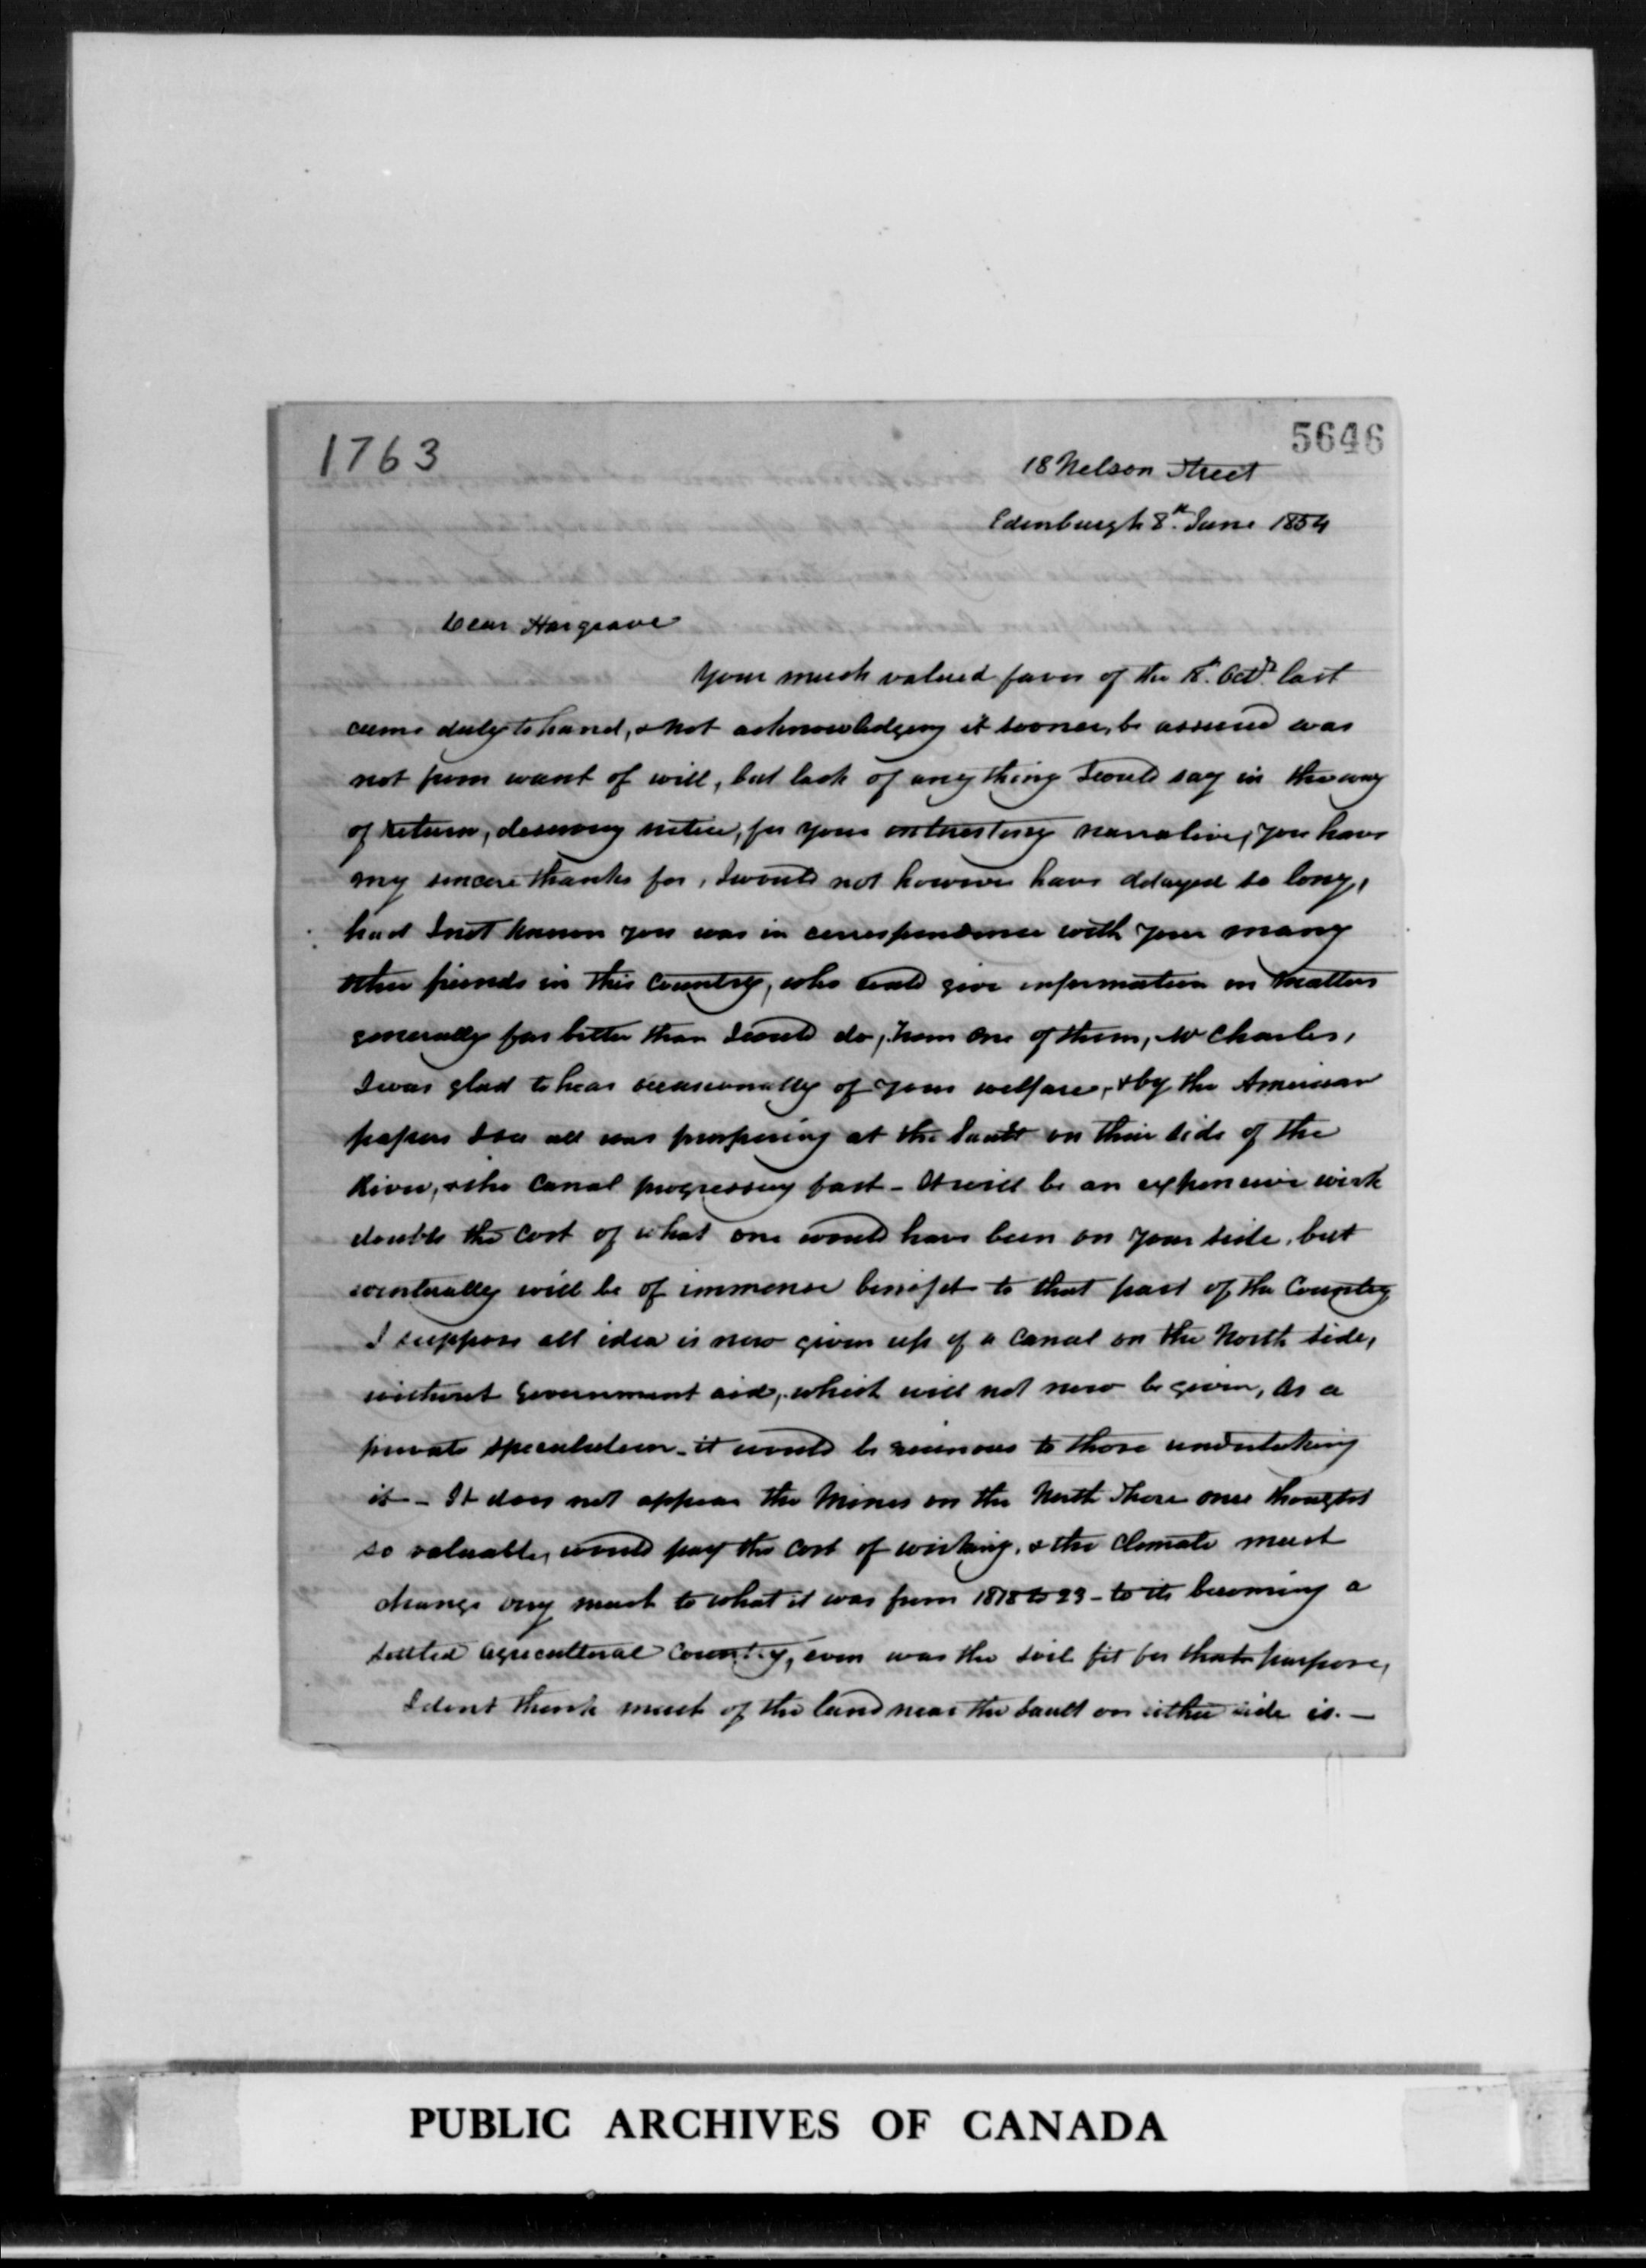 1763
5646
18 Nelson Street
Edinburgh 8th. June 1854
Dear Hargrave
Your much valued favor of the 18th. Octr. last
came duly to hand, & not acknowledging it sooner, be assured was
not from want of will, but lack of any thing I could say in the way
of return, deserving notice, for your interesting narrative, you have
my sincere thanks for, I would not however have delayed so long,
had I not known you was in correspondence with your many
other friends in this Country, who could give information on matters
generally far better than I could do, from one of them, Mr Charles,
I was glad to hear occasionally of your welfare, & by the American
papers I see all was prospering at the Sault on their side of the
River, & the Canal progressing fast - It will be an expensive work
double the cost of what one would have been on your side, but
eventually will be of immense benefit to that part of the Country
I suppose all idea is now given up of a Canal on the North side,
without Government aid, which will not now be given, as a
private speculation - it would be ruinous to those undertaking
it - It does not appear the Mines on the North Shore once thought
so valuable, would pay the cost of working, & the Climate must
change very much to what it was from 1818 to 23 - to its becoming a
settled agricultural Country, even was the soil fit for that purpose,
I dont think much of the land near the Sault on either side is. -
PUBLIC ARCHIVES OF CANADA